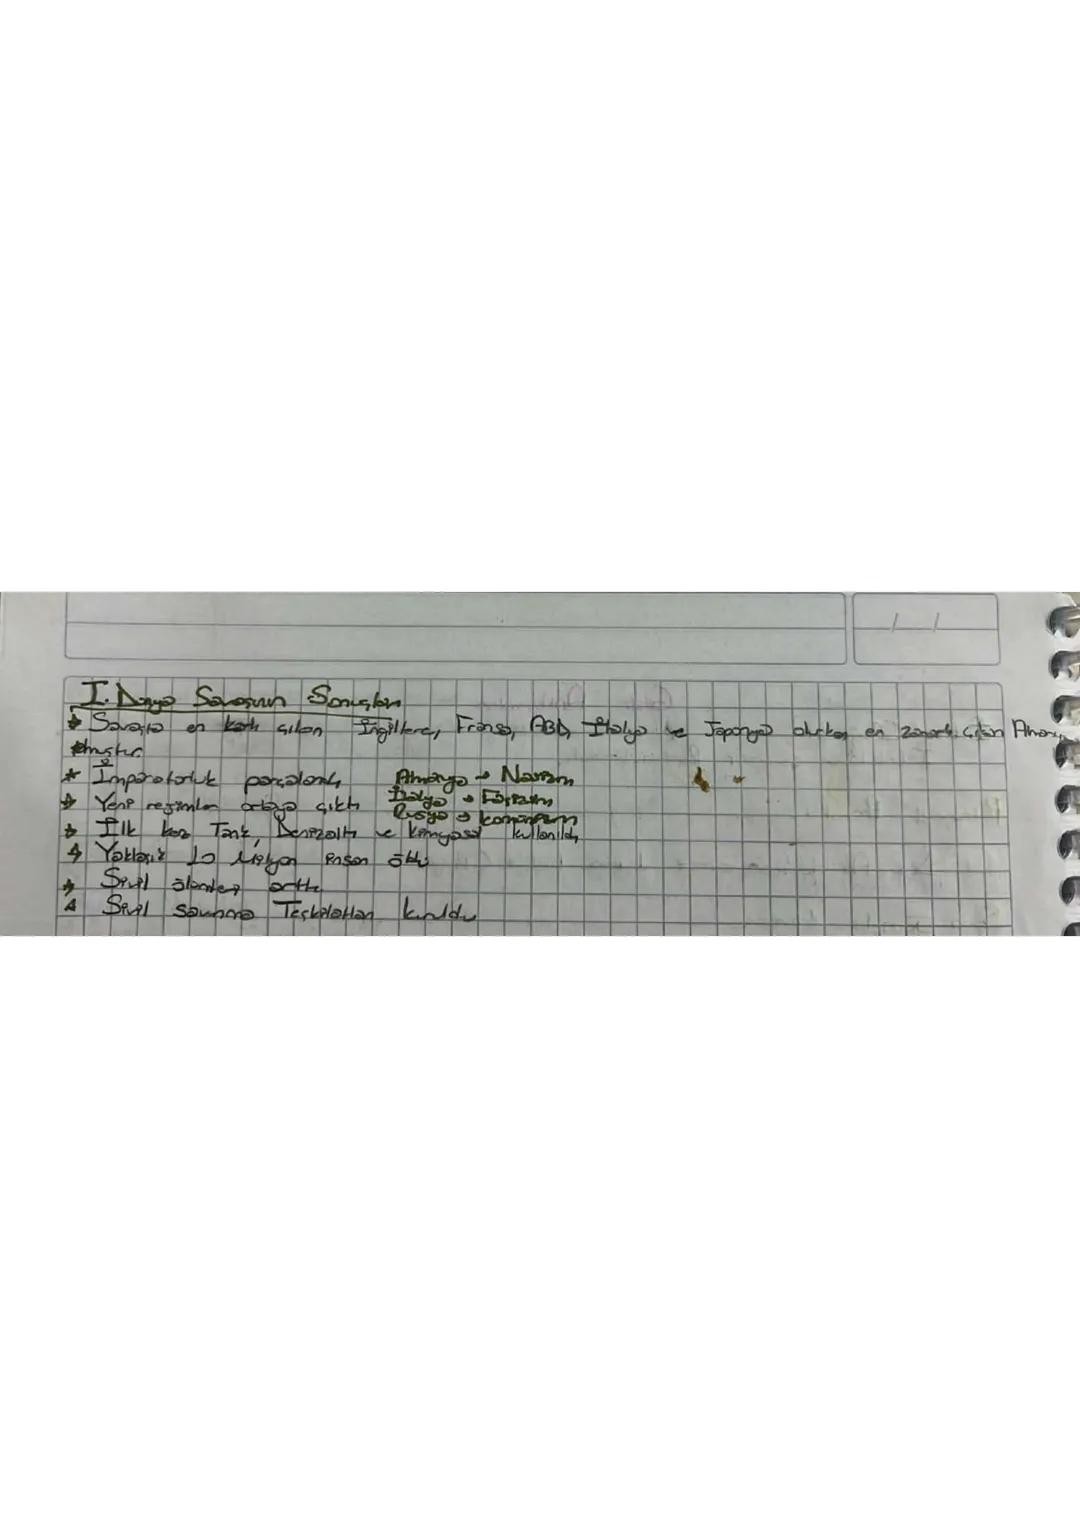 I. Dünya Savaşının Sonuçları
Savaşta en karlı çıkan İngiltere, Fransa, ABD, İtalya ve Japonya olurken en zararlı çıkan Almanya
olmuştur.
İmparatorluk parçalandı
Yeni rejimler ortaya çıktı
Almanya → Nazizm
İtalya → Faşizm
Rusya → komünizm
İlk kez Tank, Denizaltı ve kimyasal kullanıldı
Yaklaşık 10 Milyon insan öldü
Sivil ölümler arttı
Sivil savunma Teşkilatları kuruldu